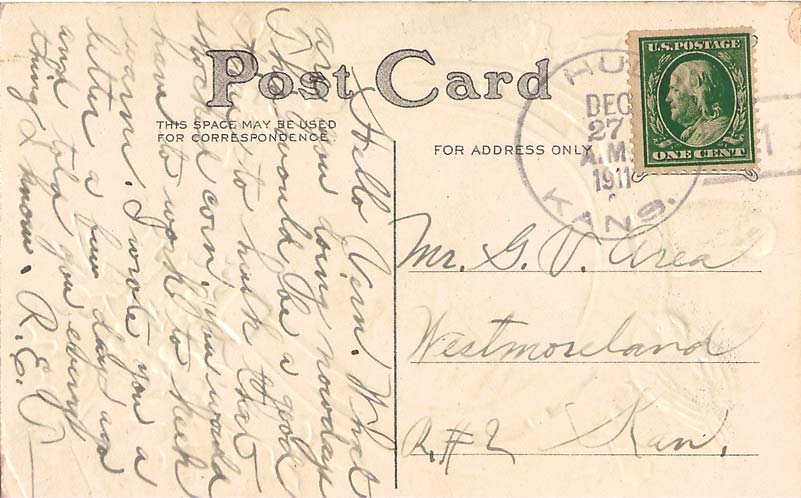 Post Card
THIS SPACE MAY BE USED
FOR CORRESPONDENCE
FOR ADDRESS ONLY
U.S. POSTAGE
ONE CENT
HUL
DEC
27
A.M.
1911
KANS.
1
Hello Vern. What
are you doing nowdays
This would be a good
time to husk that
shocked corn. You would
have to work to keep
warm. I wrote you a
letter a few days ago
and told you every
thing I know. R.E.
Mr. G. V. Area
Westmoreland
R.#2 Kan.